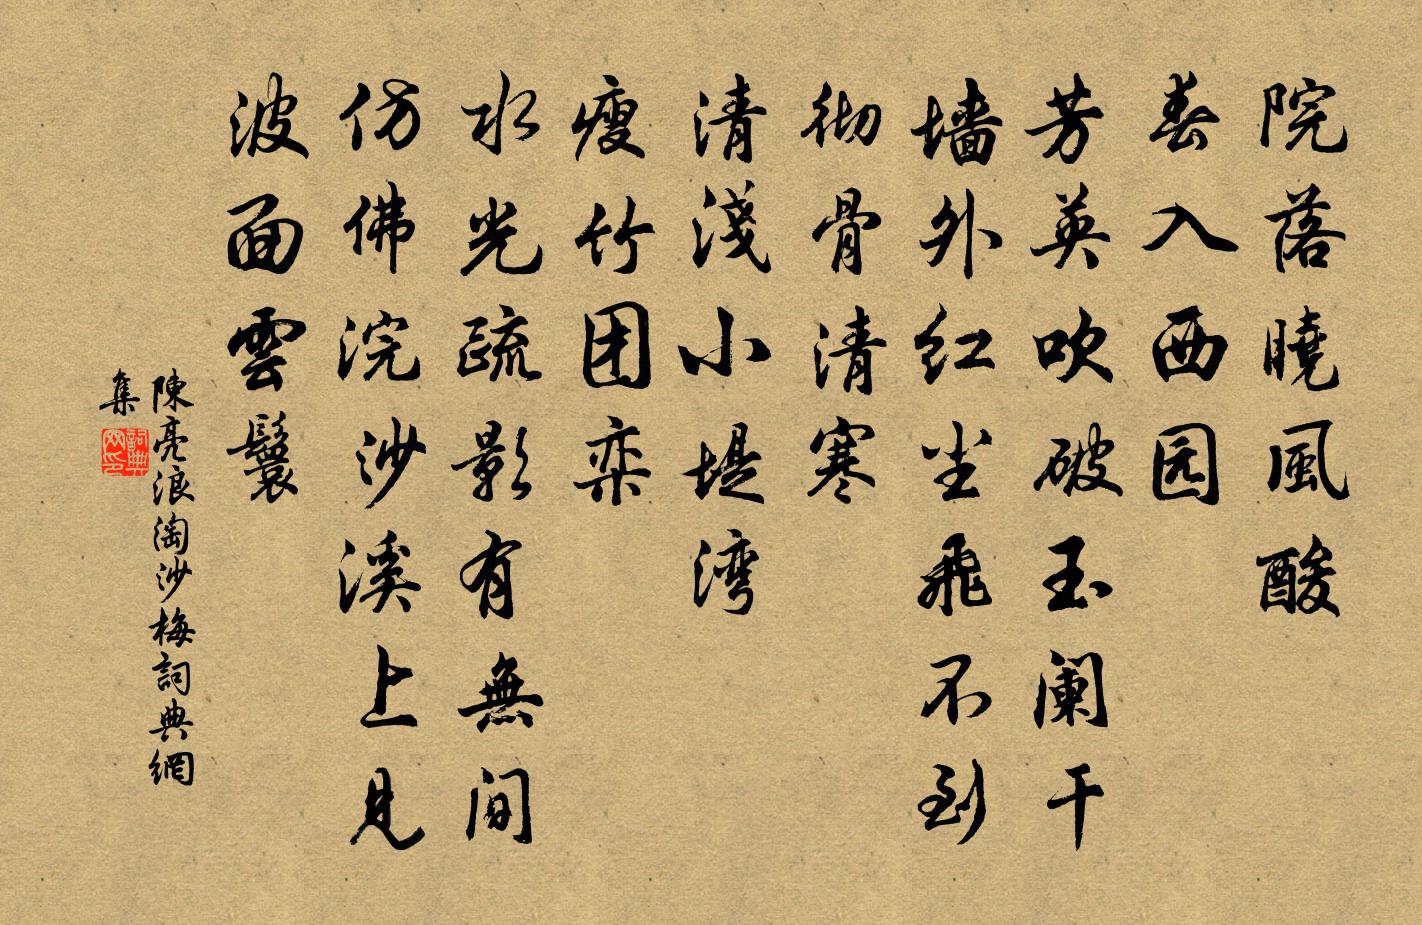 院落曉風酸
春入西园
芳英吹破玉阑干
墙外红尘飛不到
彻骨清寒
清淺小堤湾
瘦竹团栾
水光疏影有無间
仿佛浣沙溪上見
波面雲鬟
陳亮浪淘沙梅詞典網
集
詞典
网印